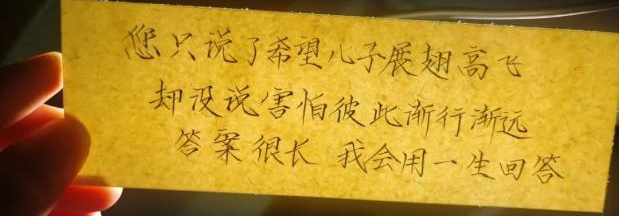 您只说了希望儿子展翅高飞
却没说害怕彼此渐行渐远
答案很长 我会用一生回答